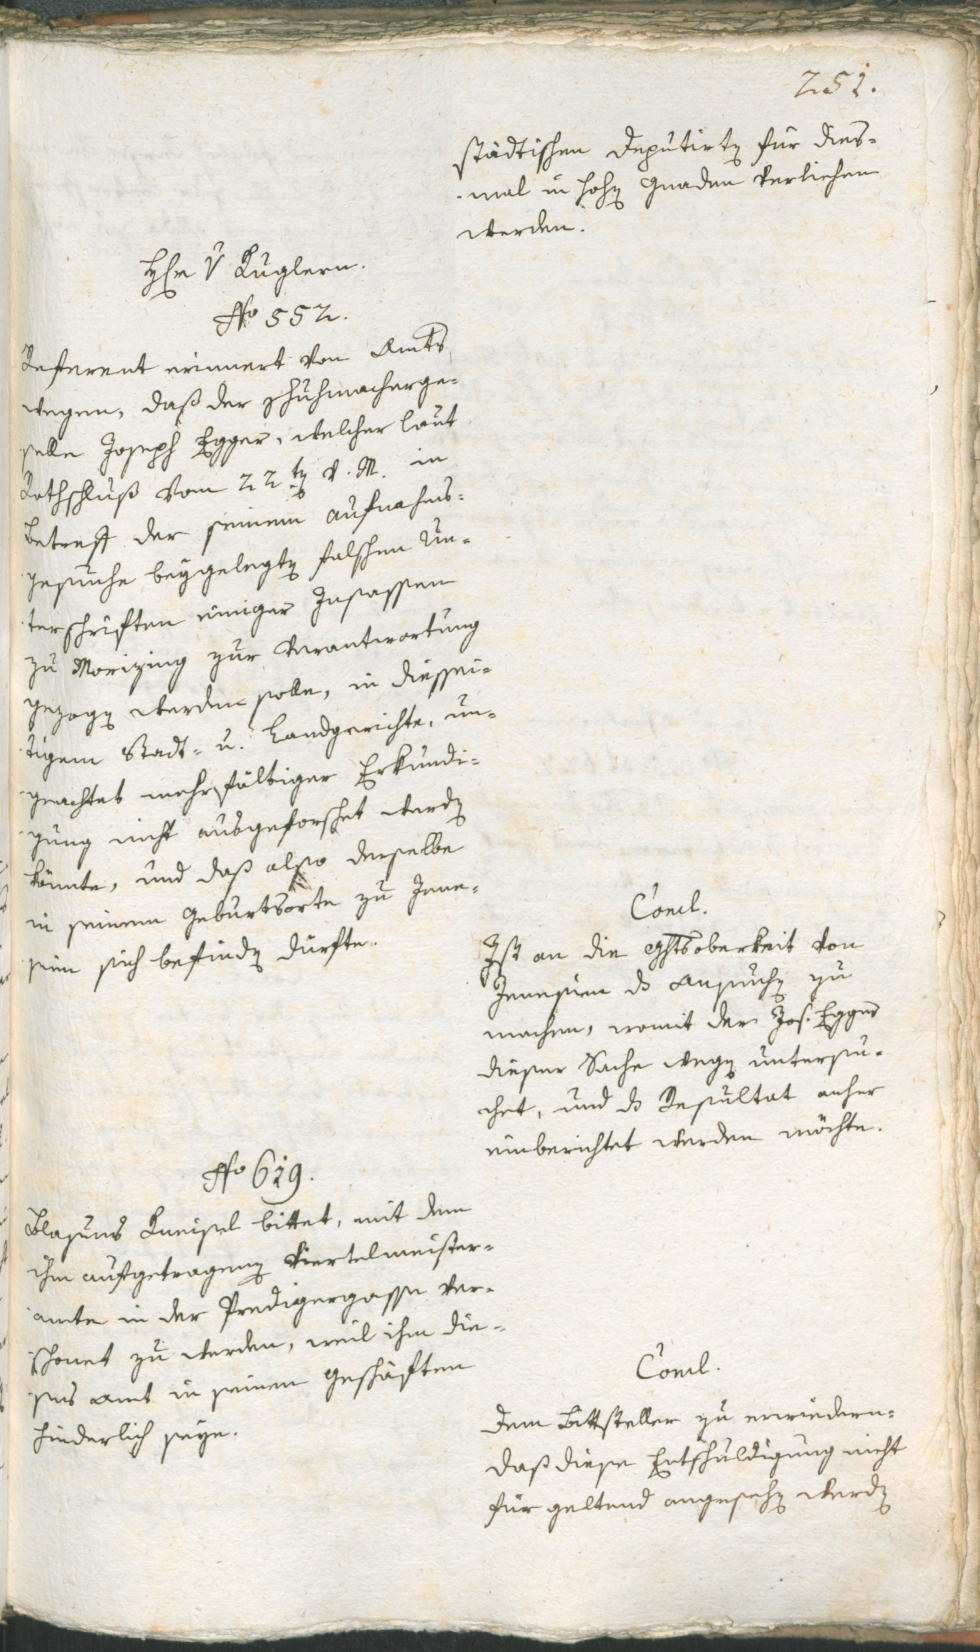 251.
städtischen Deputirten für dies-
mal in hohen Gnaden verliehen
werden.
Hrn v Kuglern.
No 552.
Referent erinnert von Amts
wegen, daß der Schuhmacherge-
selle Joseph Egger, welcher laut
Rathschluß vom 22ten v. M. in
Betreff der seinem Aufnahms-
gesuche beygelegten falschen Un-
terschriften einiger Insassen
zu Morizing zur Verantwortung
gezogen werden solle, in diessei-
tigem Stadt- u. Landgerichte, un-
geachtet mehrfältiger Erkundi-
gung nicht ausgeforschet werden
könnte, und daß also derselbe
in seinem Geburtsorte zu Jene-
sien sich befinden dürfte.
Concl.
Ist an die Ghtsoberkeit von
Jenesien ds Ansuchen zu
machen, womit der Jos. Egger
dieser Sache wegen untersu-
chet, und ds Resultat anher
einberichtet werden möchte.
No 619.
Blasius Kneisel bittet, mit dem
ihm aufgetragenen Viertelmeister-
amte in der Predigergasse ver-
schonet zu werden, weil ihm die-
ses Amt in seinen Geschäften
hinderlich seye.
Concl.
Dem Bittsteller zu erwiedern:
daß diese Entschuldigung nicht
für geltend angesehen werden